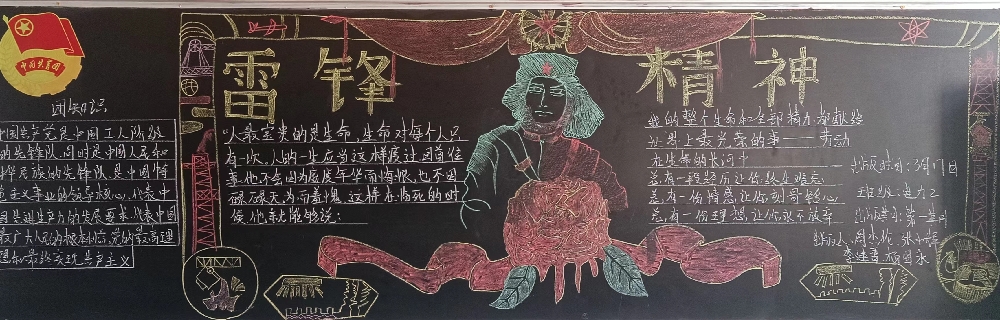 中国共青团
团知识
中国共产党是中国工人阶级
的先锋队,同时是中国人民和
中华民族的先锋队,是中国特
色主义事业的领导核心,代表中
国先进生产力的发展要求,代表中国
最广大人民的根本利益,党的最高理
想和最终实现共产主义
雷锋 精神
"人最宝贵的是生命,生命对每个人只
有一次,人的一生应当这样度过:回首往
事,他不会因为虚度年华而悔恨,也不因
碌碌无为而羞愧,这样在临死的时
候,他就能够说:
我的整个生命和全部精力都献给
世界上最光荣的事——劳动
在生命的长河中
总有一段经历让你终生难忘
总有一份情感让你刻骨铭心
总有一份理想让你永不放弃
出版时间:3月17日
出版人: